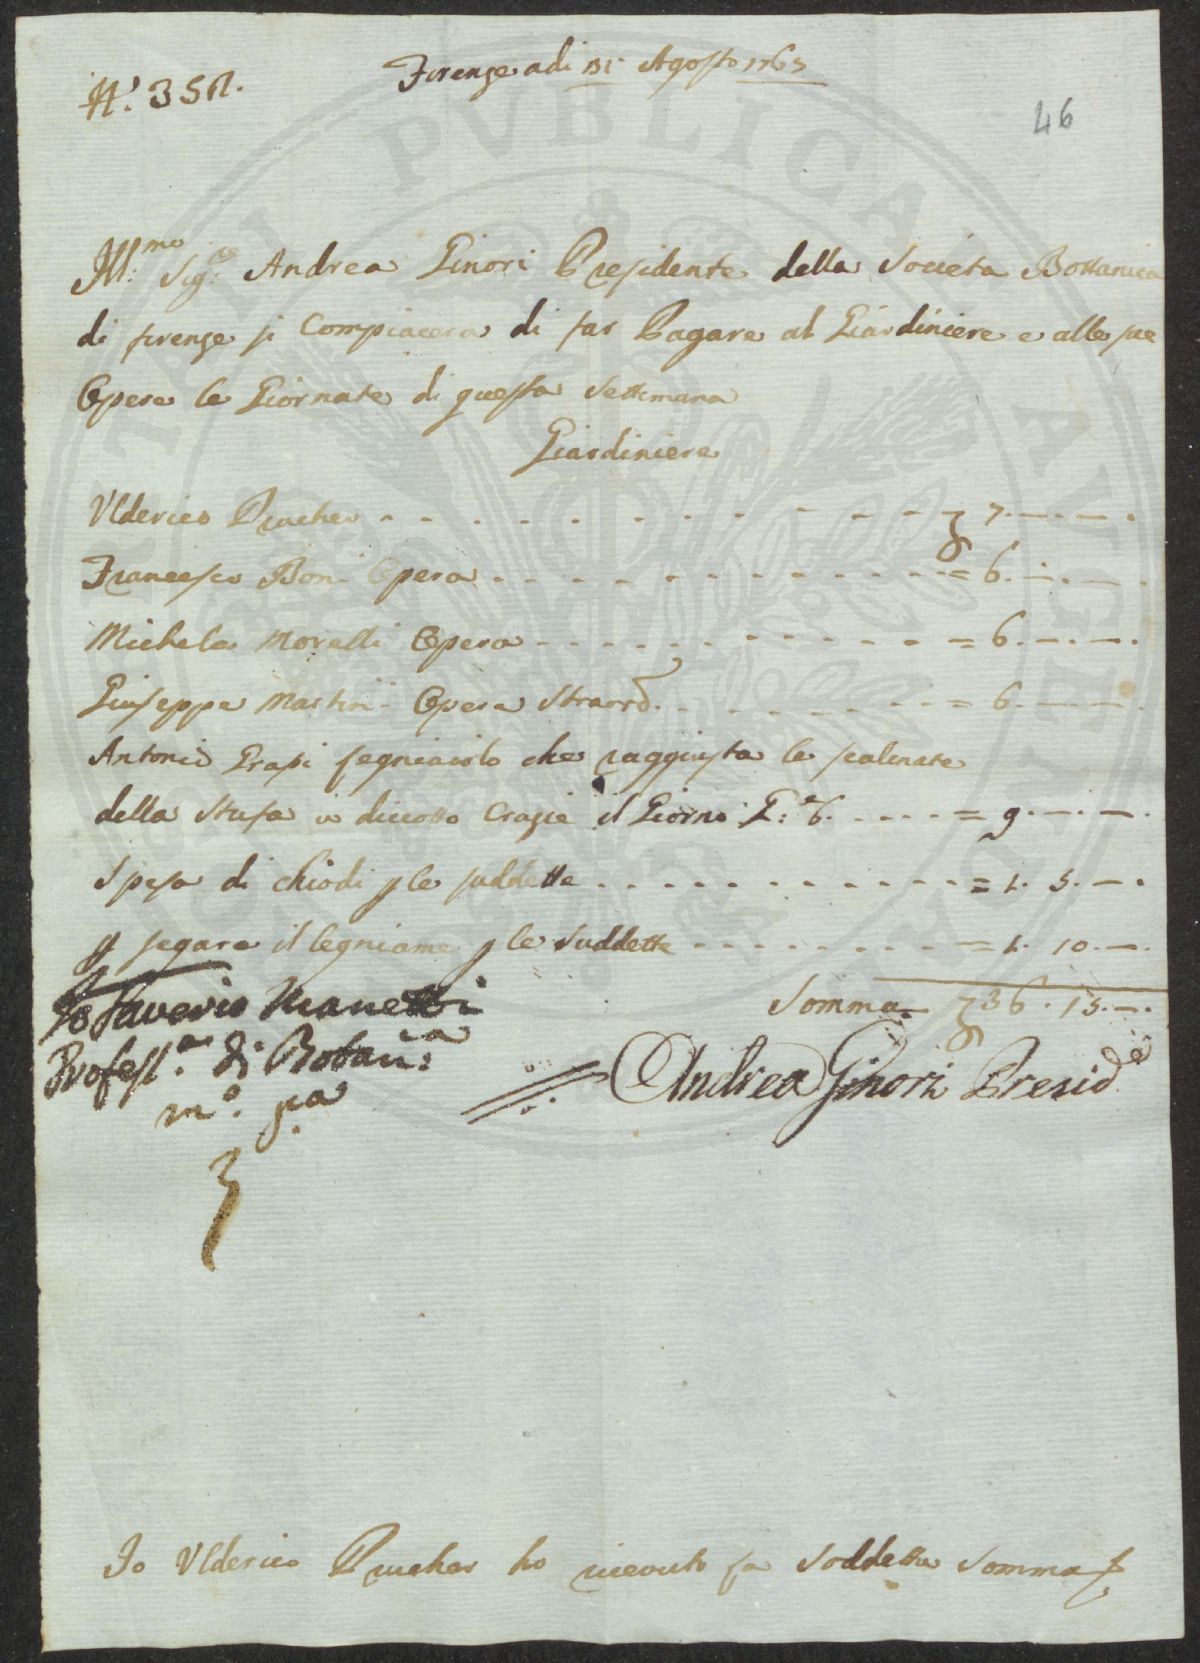 N.° 358.
Firenze adi 31 Agosto 1765
46
Ill:mo Sig:re Andrea Ginori Presidente della Società Bottanica
di firenze si Compiacera di far Pagare al Giardiniere e alle sue
Opere le Giornate di questa Settimana
Giardiniere
Ulderico Prucher - - - - - - - - - - - 7. — . — .
Francesco Boni Opera - - - - - - - - - = 6. — . — .
Michele Morelli Opera - - - - - - - - = 6. — . — .
Giuseppe Martini Opera Straord. - - - - - = 6. — . — .
Antonio Grasi legniaiolo che raggiusta le scalinate
della Stufa a diciotto Crazie il Giorno G:te 6. - - - - = 9. — . — .
Spesa di chiodi p le suddette - - - - - - - - = 1. 5. — .
p segare il legniame p le Suddette - - - - - - = 1. 10. — .
Somma 36. 15. —
Io Saverio Manetti
Profess.re di Botan:ca
m.° pa
Andrea Ginori Presid:te
Io Ulderico Prucher ho riceuto la Soddetta Somma